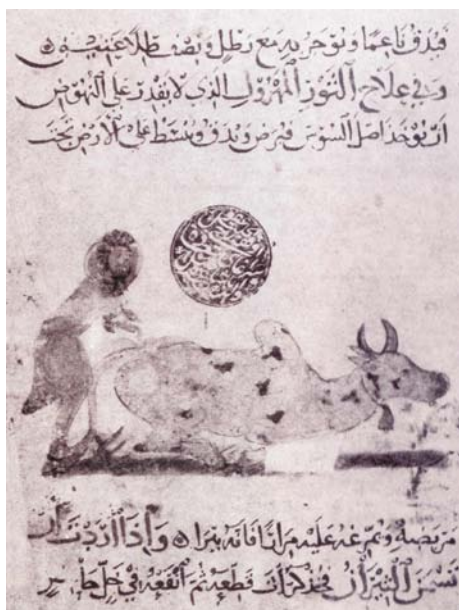 فيدق ناعما ويوجر به مع رطل ونصف طلا
وفي علاج الثور المهزول الذي لا يقدر على النهوض
ان يوخذ اصل السوس فيرض ويدق ويبسط على الارض تحت
مربضه ويمرغه عليه مرارا فانه يبرا واذا اردت ان
تسمن الثيران فخذ كراث قطعه ثم انقعه في خل